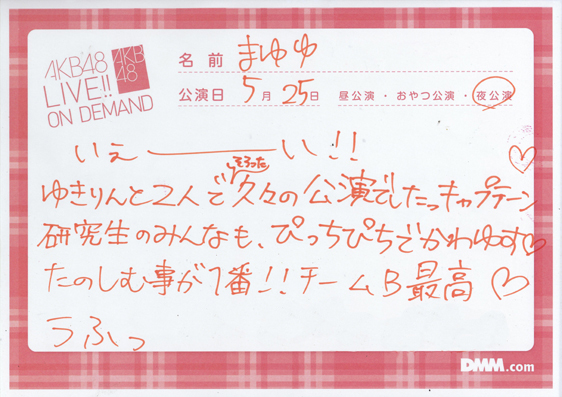 AKB48
LIVE!!
ON DEMAND
AKB
48
名前 まゆゆ
公演日 5月25日 昼公演・おやつ公演・夜公演
いぇーーい!!
そろった
ゆきりんと2人で久々の公演でしたっキャプテーン
研究生のみんなも、ぴっちぴちでかわゆす♡
たのしむ事が1番!!チームB最高♡
うふっ
DMM.com